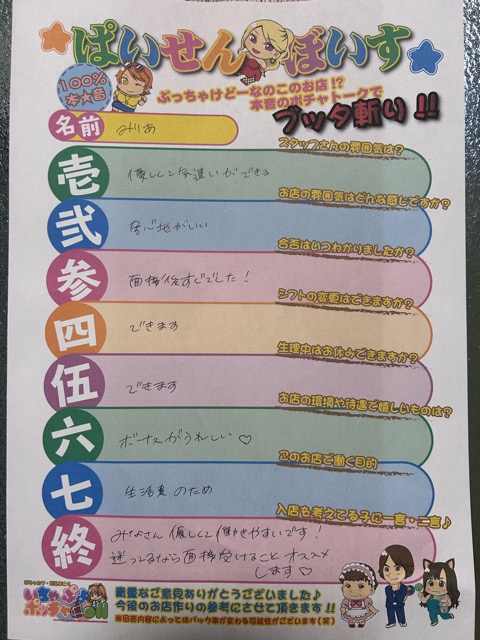 ぱいせんぼいす
100%
本★音
ぶっちゃけどーなのこのお店!?
本音のポチャトークで
ブッタ斬り!!
名前
みりあ
スタッフさんの雰囲気は?
壱
優しくて気遣いができる
お店の雰囲気はどんな感じですか?
弐
居心地がいい
合否はいつわかりましたか?
参
面接後すぐでした!
シフトの変更はできますか?
四
できます
生理中はお休みできますか?
伍
できます
お店の環境や待遇で嬉しいものは?
六
ボーナスがうれしい♡
このお店で働く目的
七
生活費のため
入店を考えてる子に一言・二言♪
終
みなさん優しくて働きやすいです!
迷ってるなら面接受けることオススメ
します♡
いちゃぷよ
ポッチャ
貴重なご意見ありがとうございました♪
今後のお店作りの参考にさせて頂きます!!
※回答内容によってはバック率が変わる可能性がございます(笑)